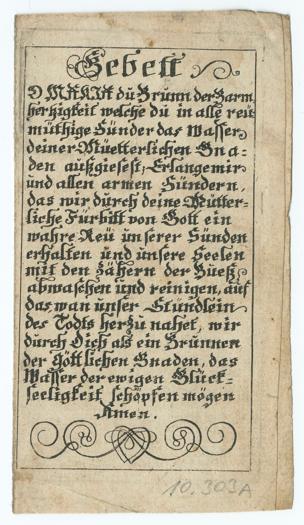 Gebett
O MARIA dü Brunn der Barm
hertzigkeit welche dü in alle reü
müthige Sünder das Wasser
deiner Müetterlichen Gna-
den außgiesest, Erlange mir
und allen armen Sündern,
das wir durch deine Mütter-
liche Fürbitt von Gott ein
wahre Reü unserer Sünden
erhalten und unsere Seelen
mit den Zähern der Bueß
abwaschen und reinigen, auf
das, wan unser Stündlein
des Todts herzu nahet, wir
durch Dich als ein Brunnen
der Göttlichen Gnaden, das
Wasser der ewigen Glück-
seeligkeit schöpfen mögen
Amen.
10.303A